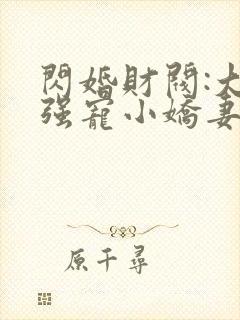 閃婚財閥:大
强寵小嬌妻
原千尋